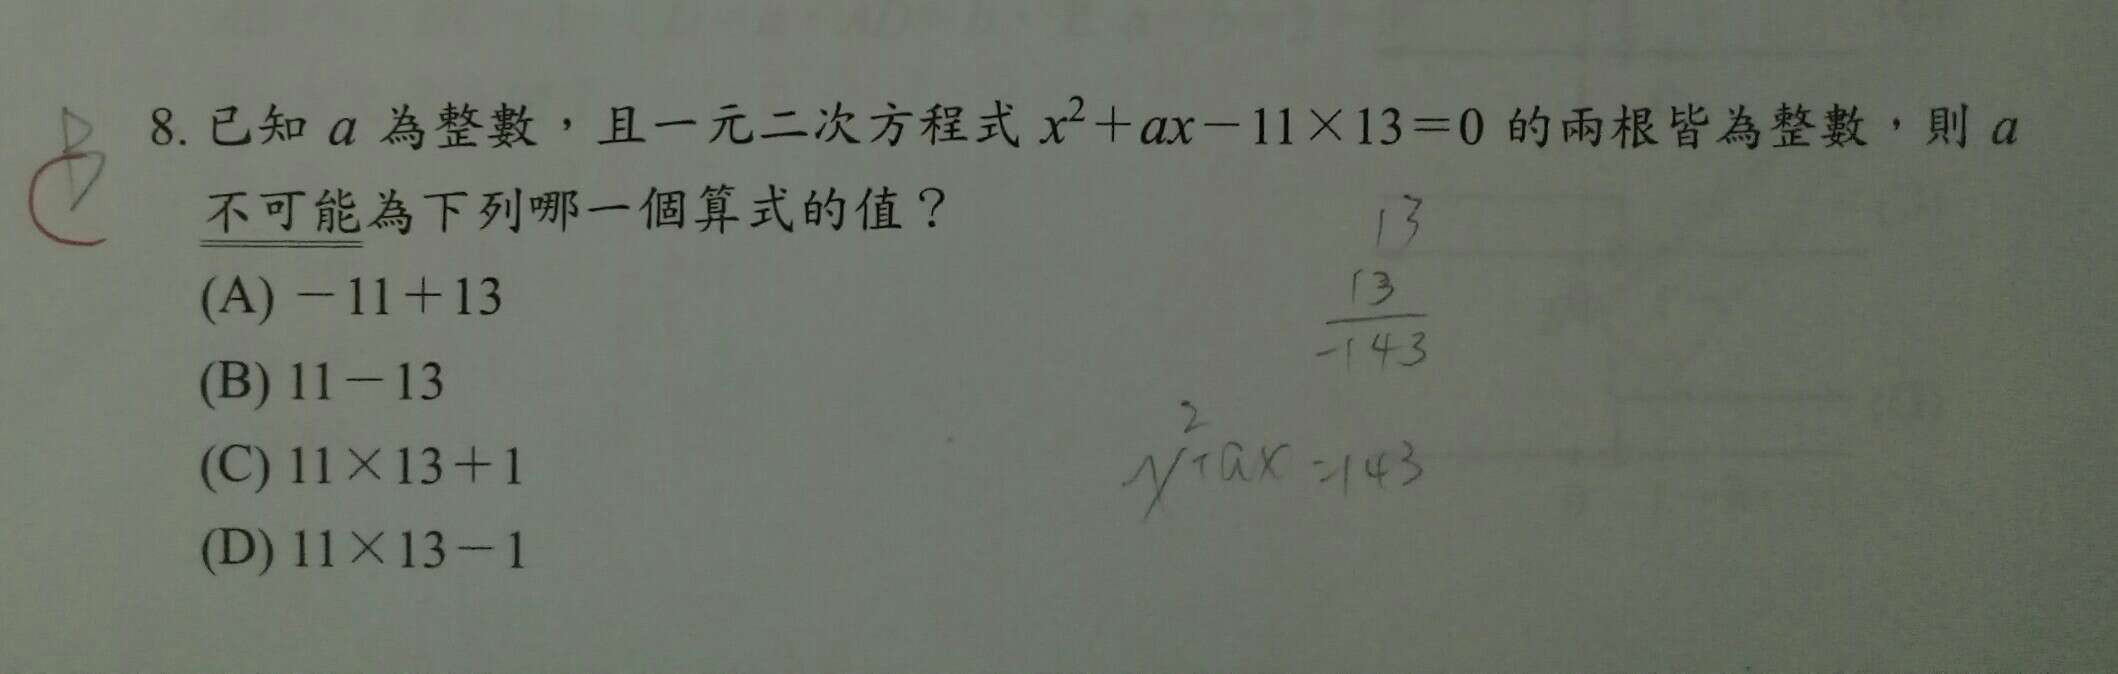 8. 已知 a 為整數，且一元二次方程式 x²＋ax－11×13＝0 的兩根皆為整數，則 a
不可能為下列哪一個算式的值？
(A) －11＋13
(B) 11－13
(C) 11×13＋1
(D) 11×13－1
13
13
-143
C